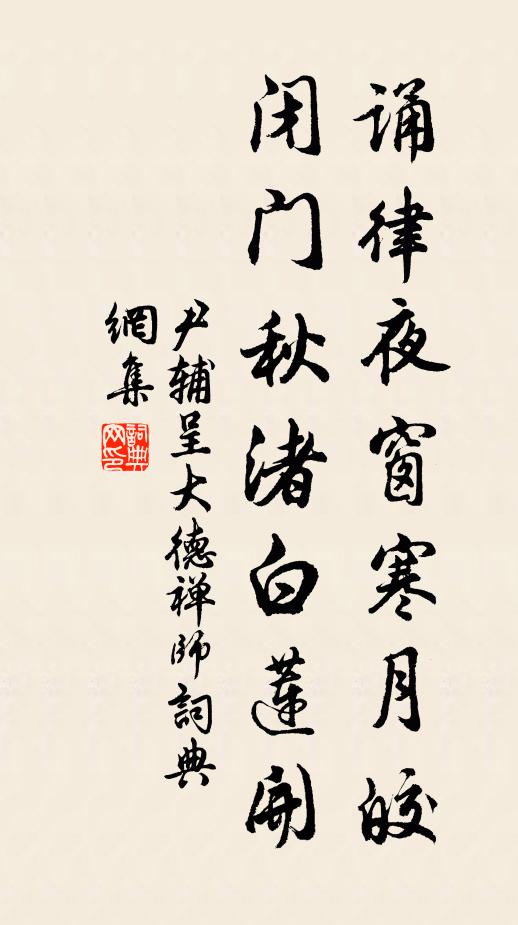 诵律夜窗寒月皎
闭门秋渚白莲開
尹辅呈大德禅师詞典
網集
詞典
网印